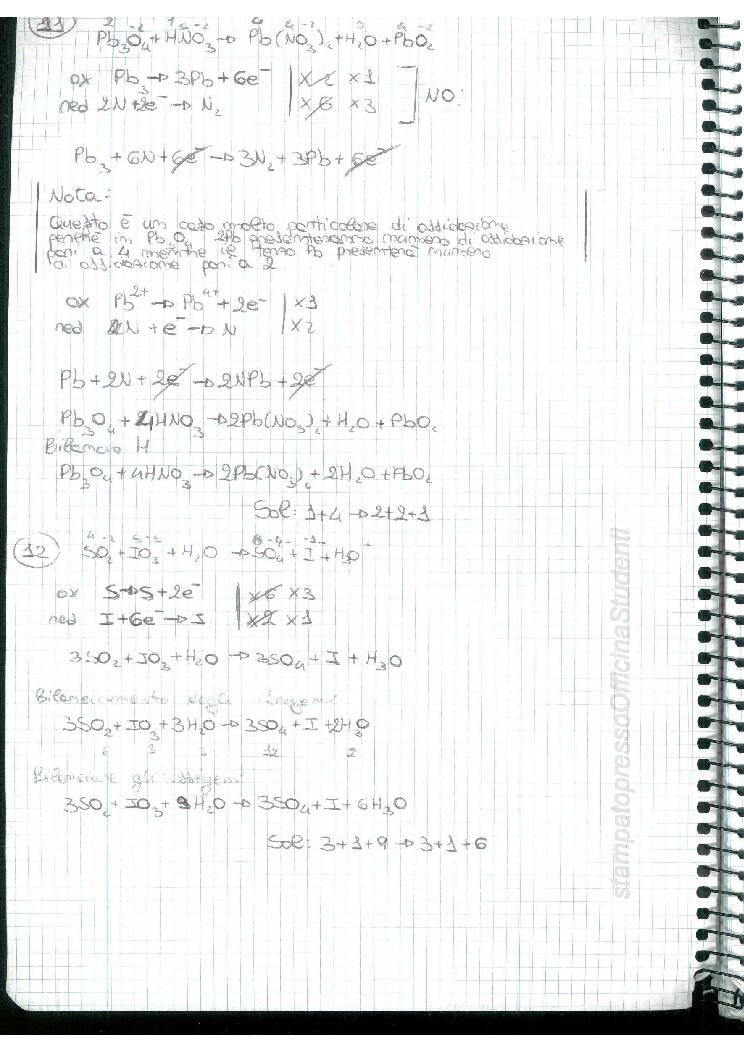 11
Pb₃O₄ + HNO₃ → Pb(NO₃)₂ + H₂O + PbO₂
ox Pb₃ → 3Pb + 6e⁻ | x2 x1
red 2N + 2e⁻ → N₂ | x6 x3
NO!
Pb₃ + 6N + 6e⁻ → 3N₂ + 3Pb + 6e⁻
Nota:
Questo è un caso molto particolare di ossidazione
perché in Pb₃O₄ 2Pb presenteranno numero di ossidazione
pari a 4 mentre il terzo Pb presenterà numero
di ossidazione pari a 2
ox Pb²⁺ → Pb⁴⁺ + 2e⁻ | x1
red N + e⁻ → N | x2
Pb + 2N + 2e⁻ → 2NPb + 2e⁻
Pb₃O₄ + 4HNO₃ → 2Pb(NO₃)₂ + H₂O + PbO₂
Bilancio H
Pb₃O₄ + 4HNO₃ → 2Pb(NO₃)₂ + 2H₂O + PbO₂
Sol: 1+4 → 2+2+1
12
SO₂ + IO₃ + H₂O → SO₄ + I + H₃O⁺
ox S → S + 2e⁻ | x6 x3
red I + 6e⁻ → I | x2 x1
3SO₂ + IO₃ + H₂O → 3SO₄ + I + H₃O
Bilanciamento degli
3SO₂ + IO₃ + 3H₂O → 3SO₄ + I + 2H₃O
6 3 3 12 2
Bilanciare gli
3SO₂ + IO₃ + 9H₂O → 3SO₄ + I + 6H₃O
Sol: 3+1+9 → 3+1+6
stampatopressoOfficinaStudenti